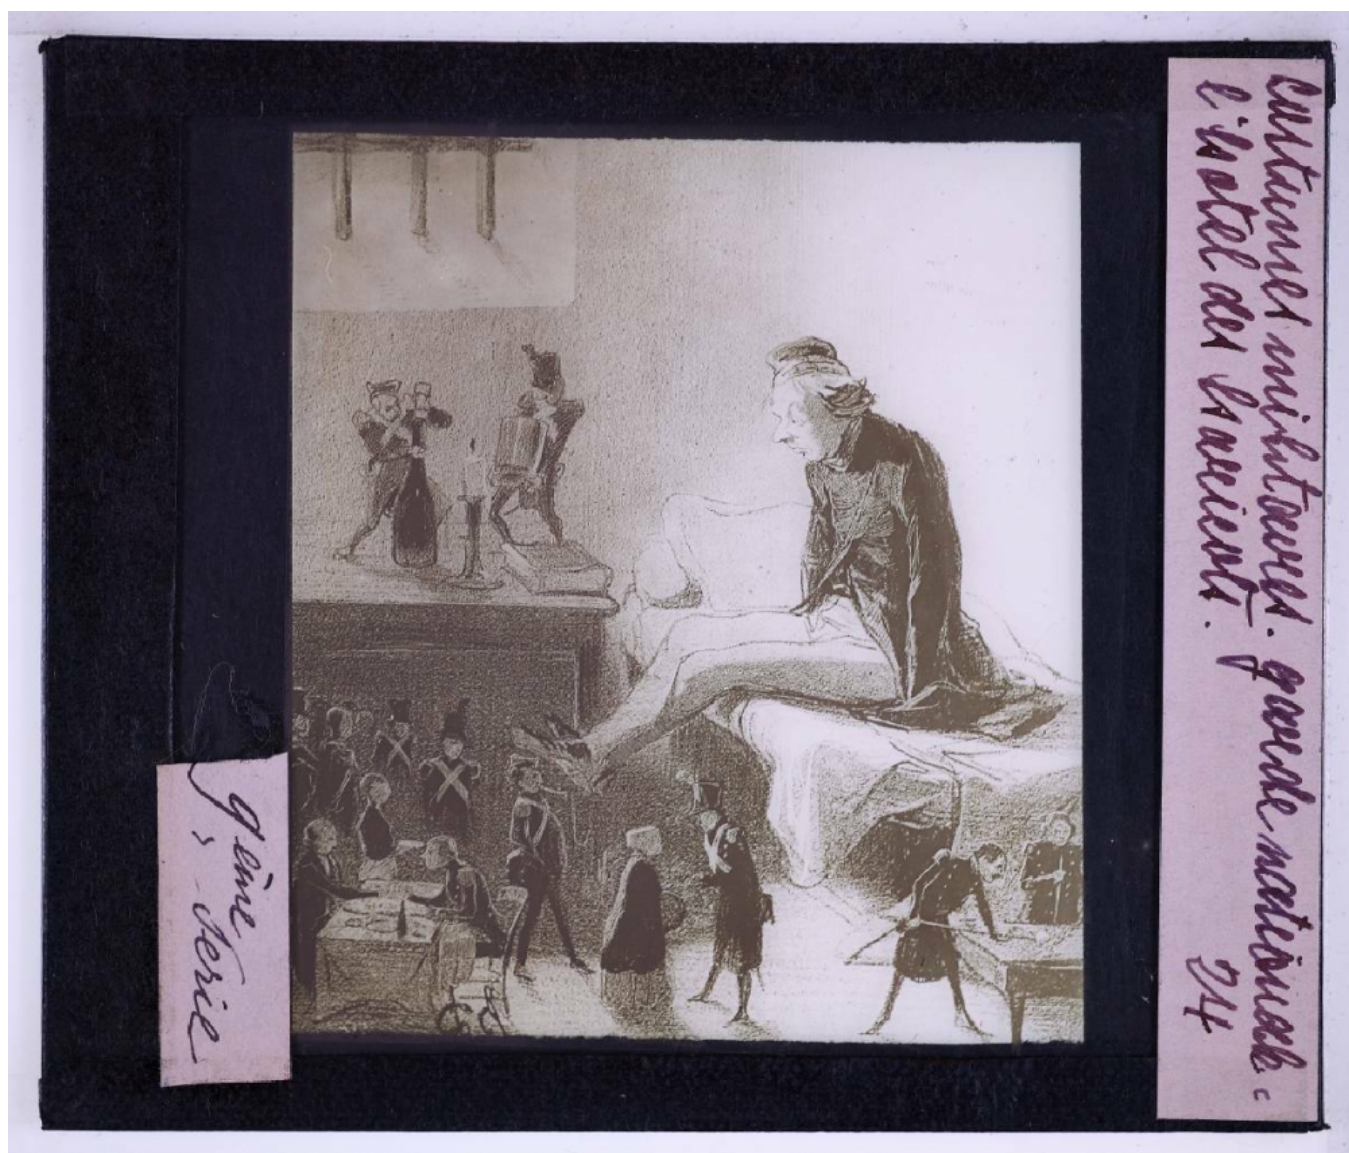 Costumes militaires. garde nationale.
l'hotel des haricots.
24
9ème
série